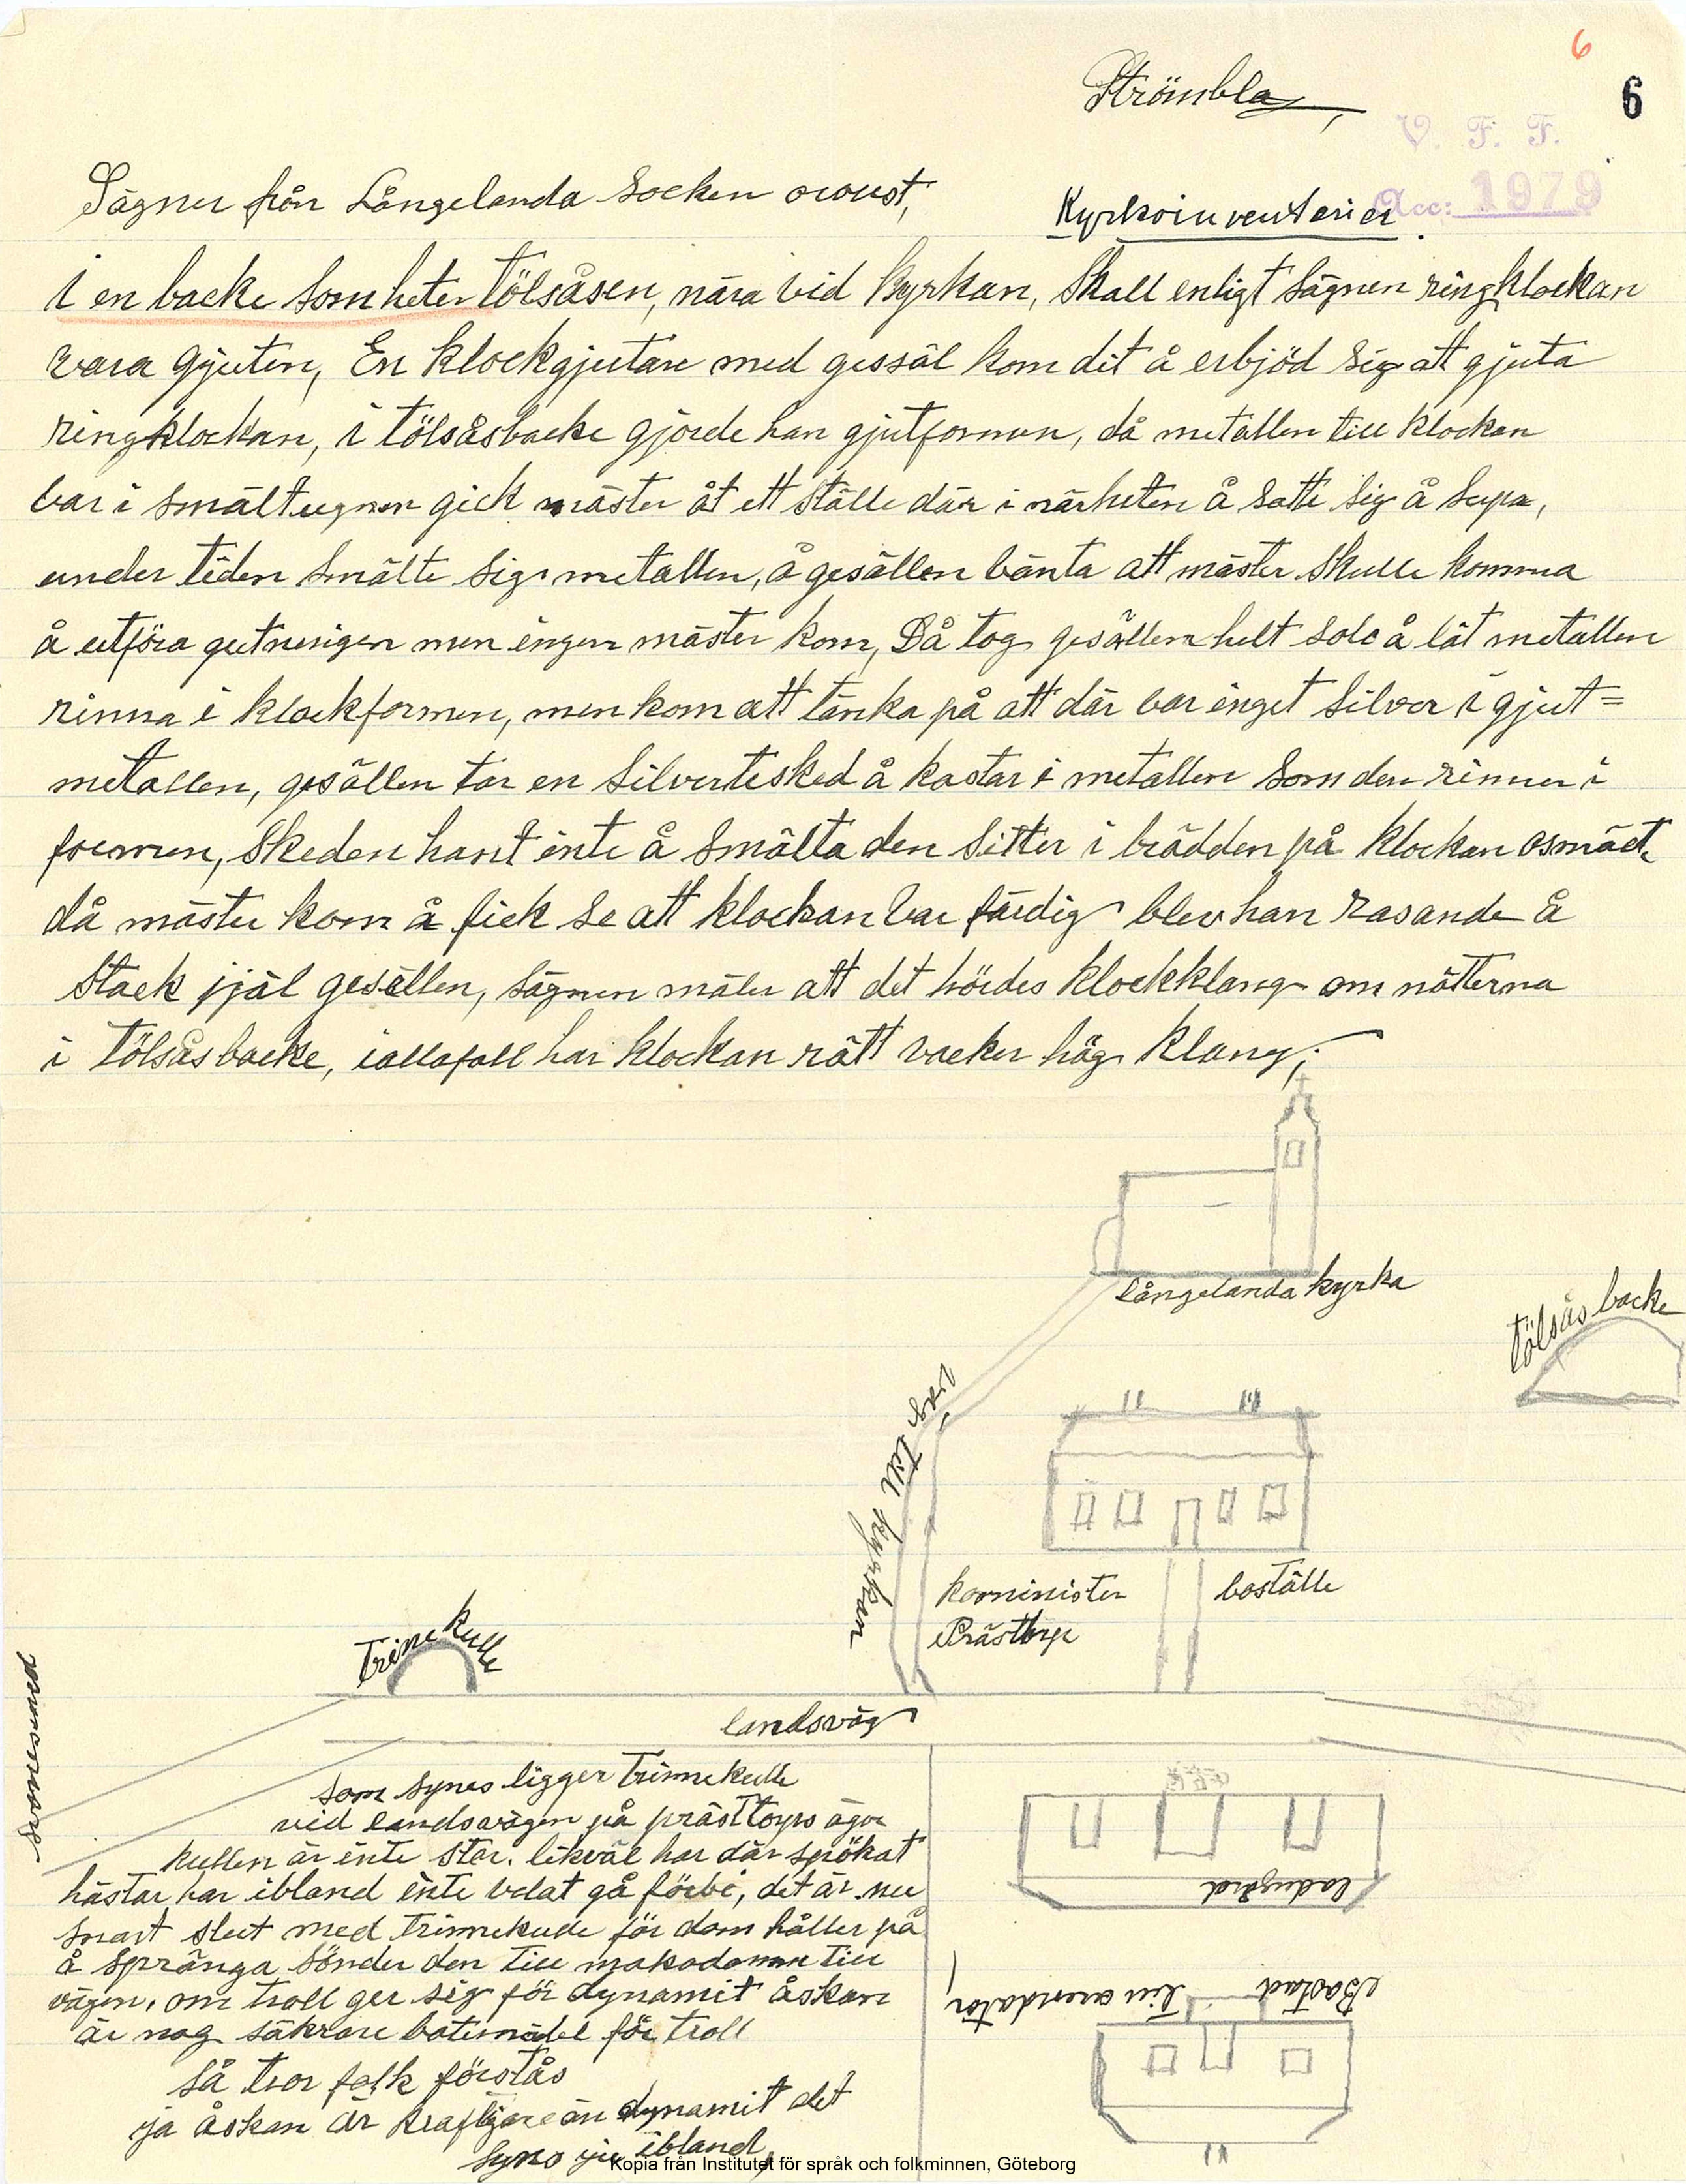 6
6
Strömbla
V. F. F.
Acc: 1979
Sägner från Långelanda Socken orout,
Kyrkoinventerier
I en backe som heter Tölsåsen, nära vid Kyrkan, Skall enligt Sägnen ringklockan
vara gjuten, En klockgjutare med gessäl kom dit å erbjöd sig att gjuta
ringklockan, i Tölsåsbacke gjorde han gjutformen, då metallen till klockan
var i smältugnen gick mäster åt ett ställe där i närheten å satte sig å supa,
under tiden smälte sig metallen, å gesällen vänta att mäster skulle komma
å utföra gutningen men ingen mäster kom, Då tog gesällen helt solo å lät metallen
rinna i klockformen, men kom att tänka på att där var inget silver i gjut=
metallen, gesällen tar en silvertesked å kastar i metallen som den rinner i
formen, skeden hant inte å smälta den sitter i brädden på klockan osmält,
då mäster kom å fick se att klockan var färdig blev han rasande å
stack ijäl gesällen, sägnen mäler att det hördes klockklang om nätterna
i Tölsåsbacke, iallafall har klockan rätt vacker hög klang,
Långelanda kyrka
Tölsåsbacke
väg till kyrkan
komminister boställe
Prästtorp
Trinnekulle
Svanesund
landsväg
som synes ligger Trinnekulle
vid landsvägen på prästtorps ägor
kullen är inte stor, likväl har där spökat
hästar har ibland inte velat gå förbi, det är nu
snart slut med Trinnekulle för dom håller på
å spränga sönder den till makadamm till
vägen, om troll ger sig för dynamit åskan
är nog säkrare botemedel för troll
så tror folk förstås
ja åskan är kraftigare än dynamit det
synes ju ibland,
ladugård
Bostad till arendator,
Kopia från Institutet för språk och folkminnen, Göteborg